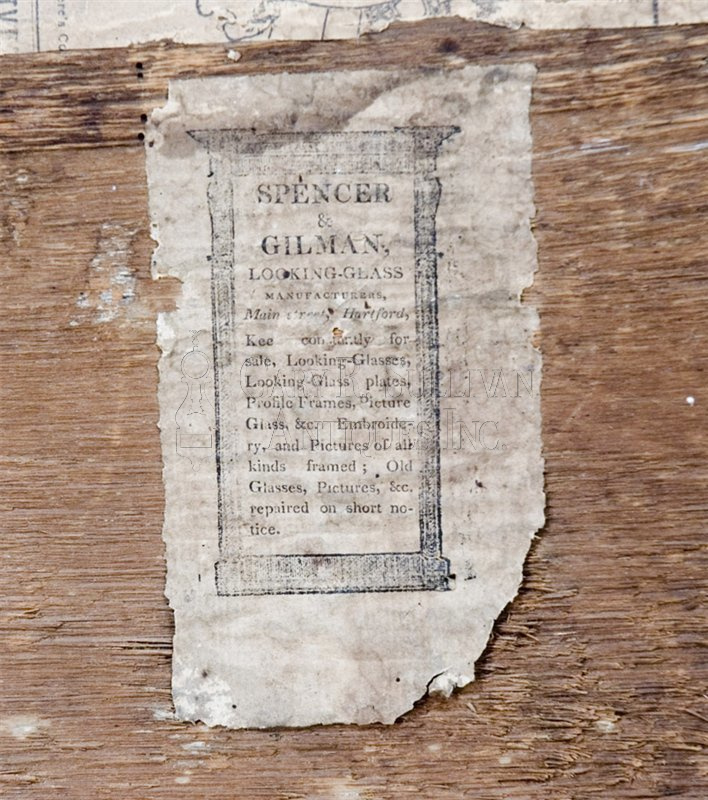 SPENCER
&
GILMAN,
LOOKING-GLASS
MANUFACTURERS,
Main street, Hartford,
Kee constantly for
sale, Looking-Glasses,
Looking-Glass plates,
Profile Frames, Picture
Glass, &c. Embroide-
ry, and Pictures of all
kinds framed; Old
Glasses, Pictures, &c.
repaired on short no-
tice.
Antiques Inc.